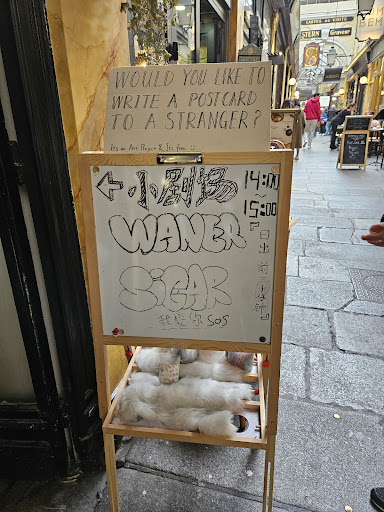 WOULD YOU LIKE TO
WRITE A POSTCARD
TO A STRANGER?
Its an Art Project & Its free
小剧场
14:00
15:00
WANER
SiGAR
我爱你 SOS
CARTES DE VISITE
STERN
Graveur